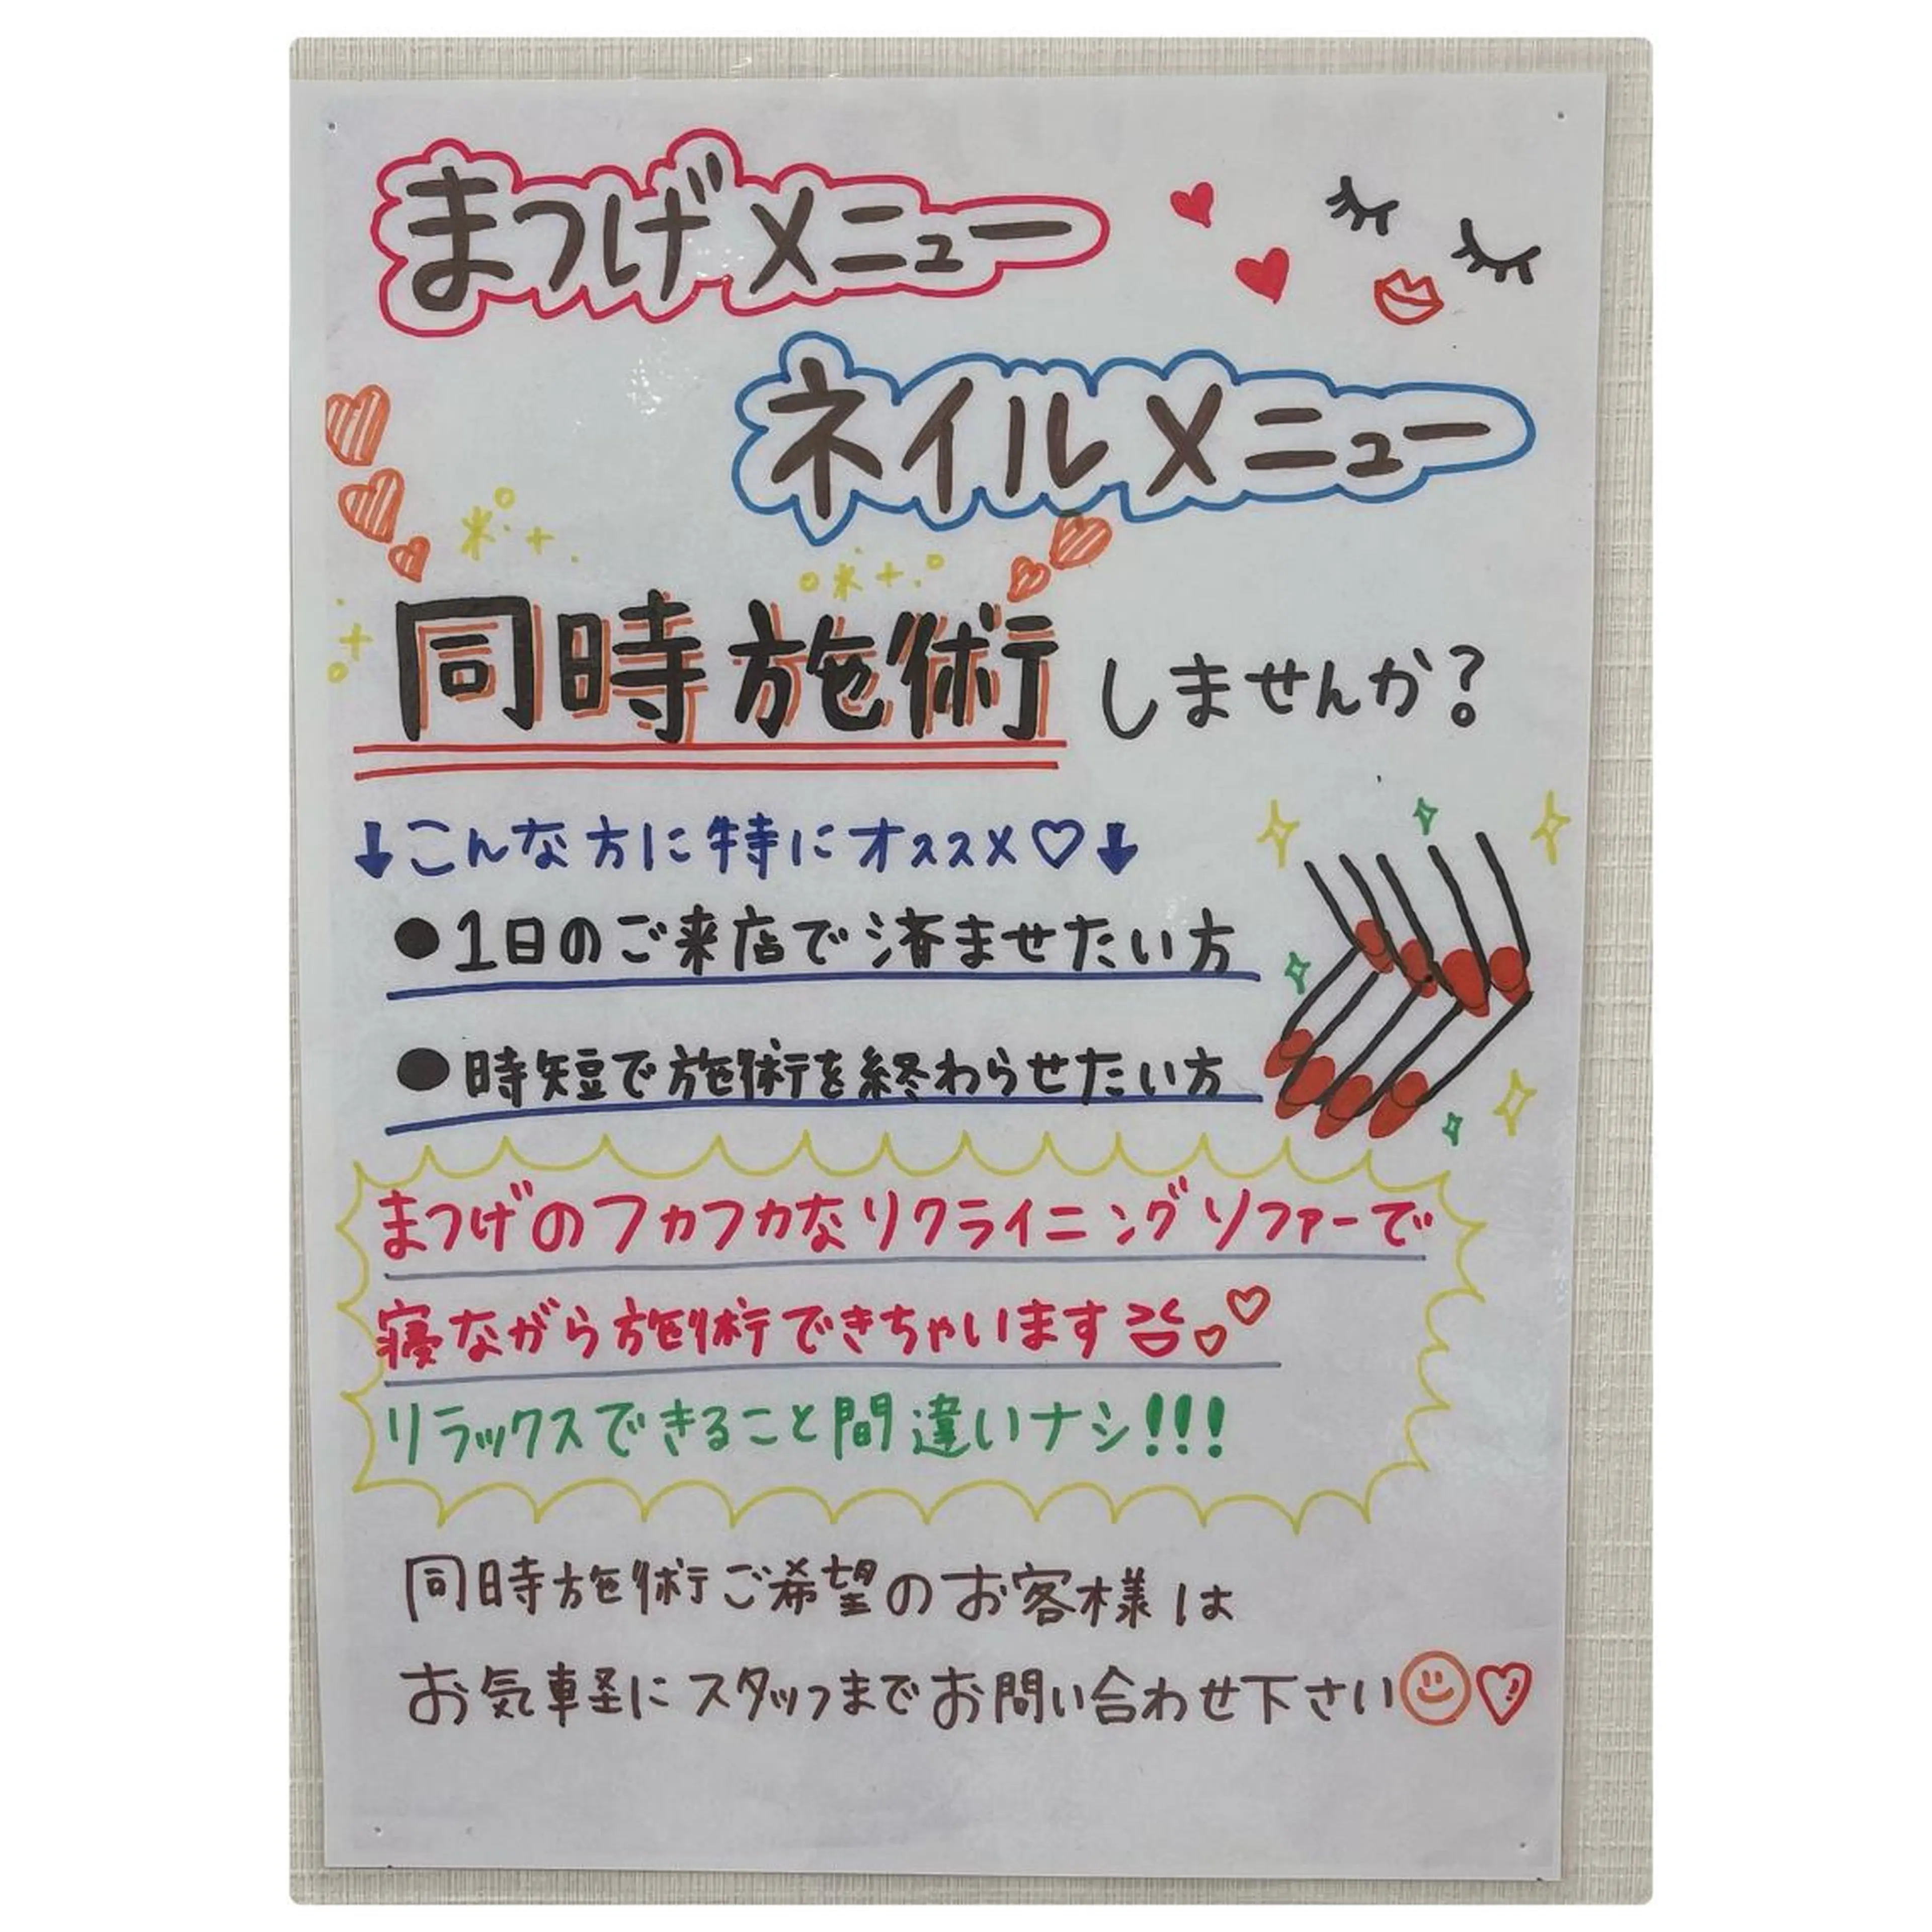 まつげメニュー
ネイルメニュー
同時施術しませんか?
↓こんな方に特にオススメ♡↓
●1日のご来店で済ませたい方
●時短で施術を終わらせたい方
まつげのフカフカなリクライニングソファーで
寝ながら施術できちゃいます
リラックスできること間違いナシ!!!
同時施術ご希望のお客様は
お気軽にスタッフまでお問い合わせ下さい